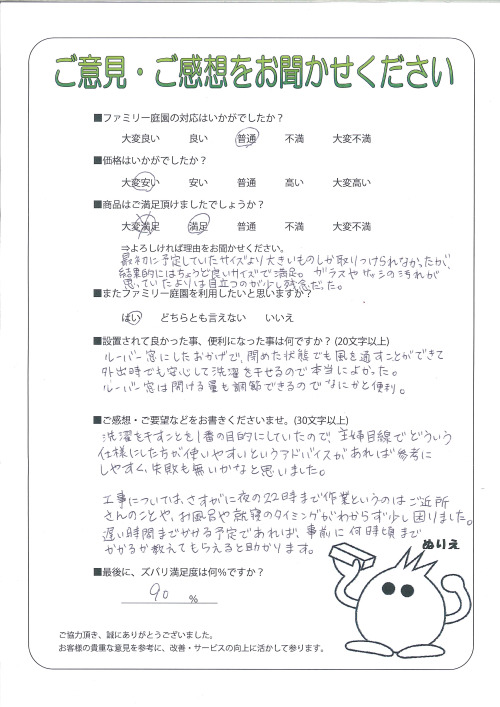 ご意見・ご感想をお聞かせください
■ファミリー庭園の対応はいかがでしたか？
大変良い 良い 普通 不満 大変不満
■価格はいかがでしたか？
大変安い 安い 普通 高い 大変高い
■商品はご満足頂けましたでしょうか？
大変満足 満足 普通 不満 大変不満
⇒よろしければ理由をお聞かせください。
最初に予定していたサイズより大きいものしか取りつけられなかったが、
結果的にはちょうど良いサイズで満足。ガラスやサッシの汚れが
思っていたよりは目立つのが少し残念だった。
■またファミリー庭園を利用したいと思いますか？
はい どちらとも言えない いいえ
■設置されて良かった事、便利になった事は何ですか？(20文字以上)
ルーバー窓にしたおかげで、閉めた状態でも風を通すことができて
外出時でも安心して洗濯を干せるので本当によかった。
ルーバー窓は開ける量も調節できるのでなにかと便利。
■ご感想・ご要望などをお書きくださいませ。(30文字以上)
洗濯を干すことを1番の目的にしていたので、主婦目線でどういう
仕様にした方が使いやすいというアドバイスがあれば参考に
しやすく、失敗も無いかなと思いました。
工事については、さすがに夜の22時まで作業というのはご近所
さんのことや、お風呂や就寝のタイミングがわからず少し困りました。
遅い時間までかかる予定であれば、事前に何時頃まで
かかるか教えてもらえると助かります。
ぬりえ
■最後に、ズバリ満足度は何%ですか？
90 %
ご協力頂き、誠にありがとうございました。
お客様の貴重な意見を参考に、改善・サービスの向上に活かして参ります。